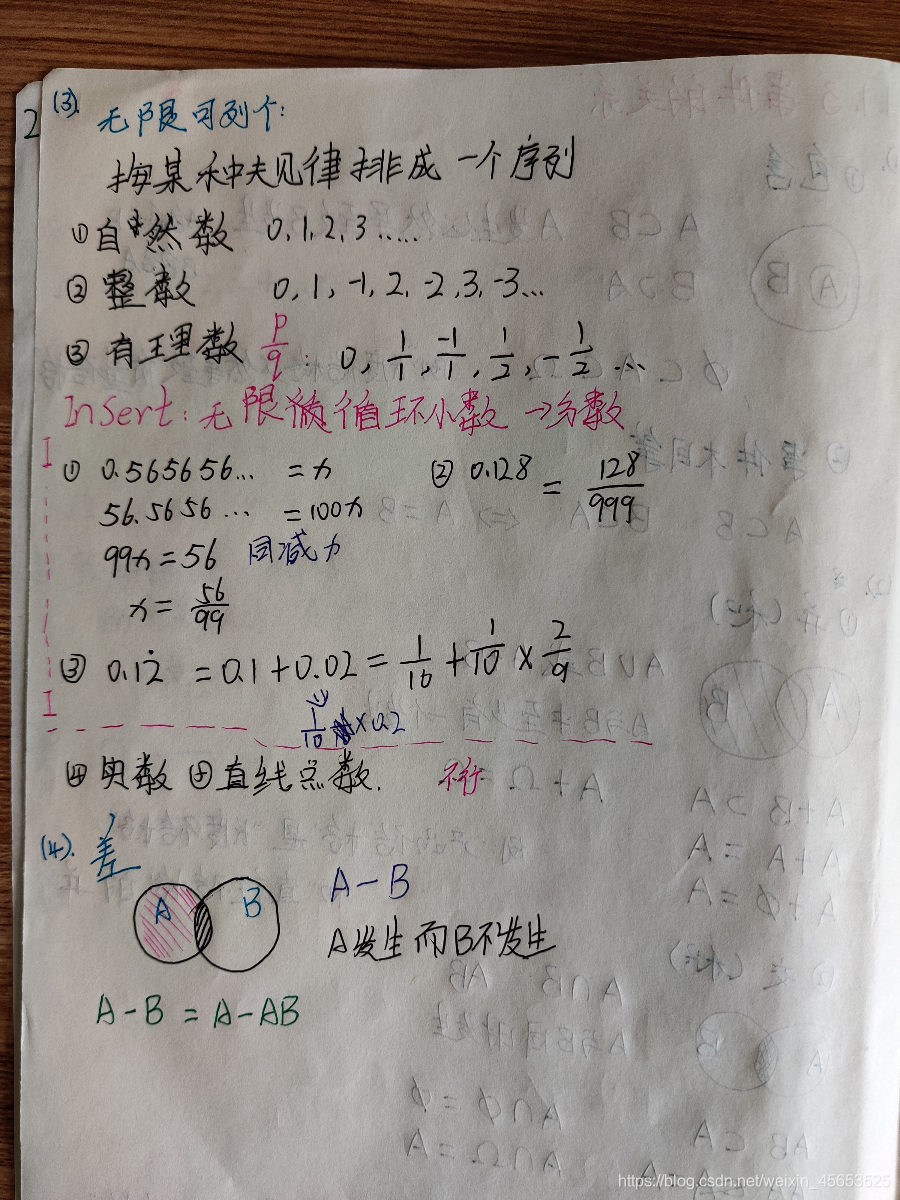 2
(3). 无限可列个:
按某种规律排成一个序列
①自然数 0,1,2,3.....
② 整数 0,1,-1,2,-2,3,-3...
③ 有理数 p/q : 0, 1/1, -1/1, 1/2, -1/2 ...
Insert: 无限循环小数 →分数
① 0.565656... = x ② 0.128 = 128/999
56.5656 ... = 100x
99x = 56 同减x
x = 56/99
③ 0.12̇ = 0.1 + 0.02 = 1/10 + 1/10 × 2/9
1/10 × 0.2
④ 实数 ⑤ 直线点数. 不行
(4). 差
A B A-B
A发生而B不发生
A-B = A-AB
https://blog.csdn.net/weixin_45653525